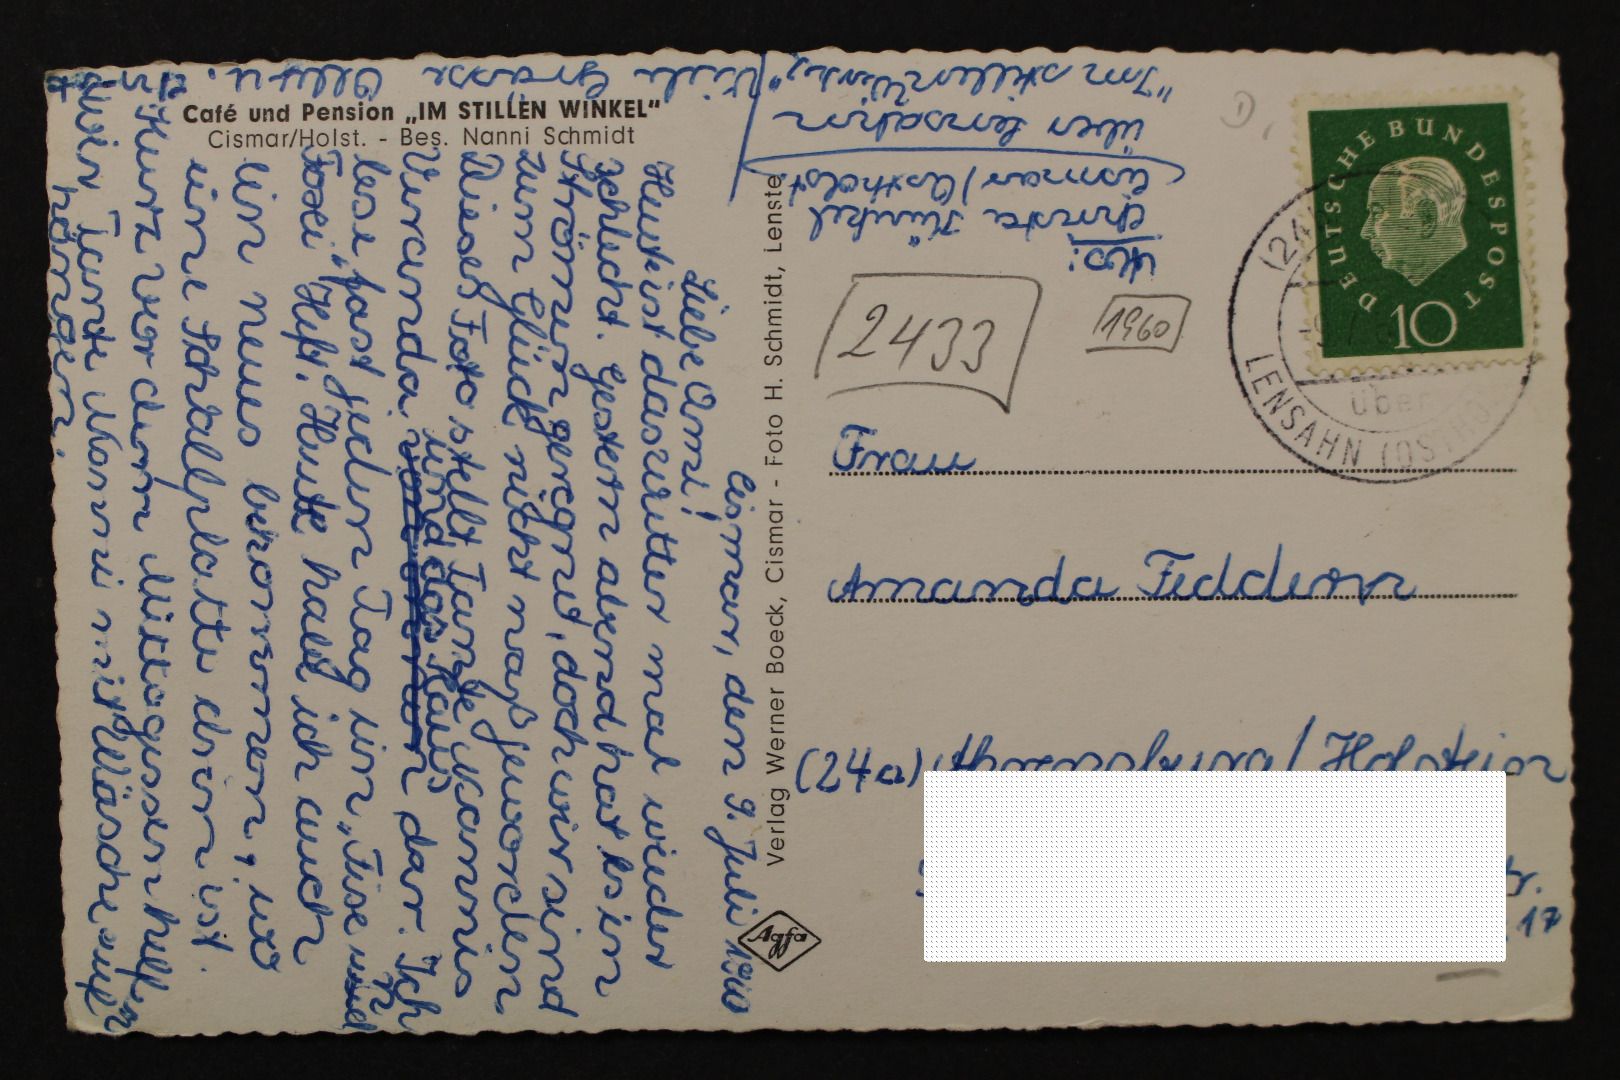 Café und Pension „IM STILLEN WINKEL"
Cismar/Holst. - Bes. Nanni Schmidt
Cismar, den 9. Juli 1960
Liebe Omi!
Heut ist das Wetter mal wieder
schlecht. Gestern abend hat es in
Strömen geregnet, doch wir sind
zum Glück nicht naß geworden.
Dieses Foto stellt Tante Nannis
Veranda und das Haus dar. Ich
lese fast jeden Tag ein „Fix und
Foxi" Heft. Heute habe ich auch
ein neues bekommen, wo
eine Schallplatte drin ist.
Kurz vor dem Mittagessen helfen
wir Tante Nanni mit Wäsche auf-
hängen.
Viele Grüsse
Verlag Werner Boeck, Cismar - Foto H. Schmidt, Lenste
Agfa
Abs:
Christa
Cismar/Ostholst.
über Lensahn
"Im stillen Winkel"
2433
1960
DEUTSCHE BUNDESPOST
10
(24
über
LENSAHN (OSTHO
Frau
Amanda Feddern
(24a) Ahrensburg/Holstein
tr.
17